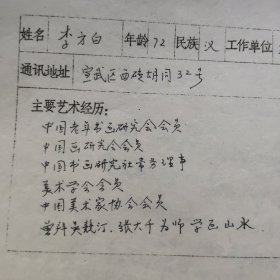 姓名 李方白 年龄 72 民族 汉 工作单位
通讯地址 宣武区西砖胡同32号
主要艺术经历：
中国老年书画研究会会员
中国画研究会会员
中国书画研究社常务理事
美术学会会员
中国美术家协会会员
曾拜吴镜汀、张大千为师 学画山水.